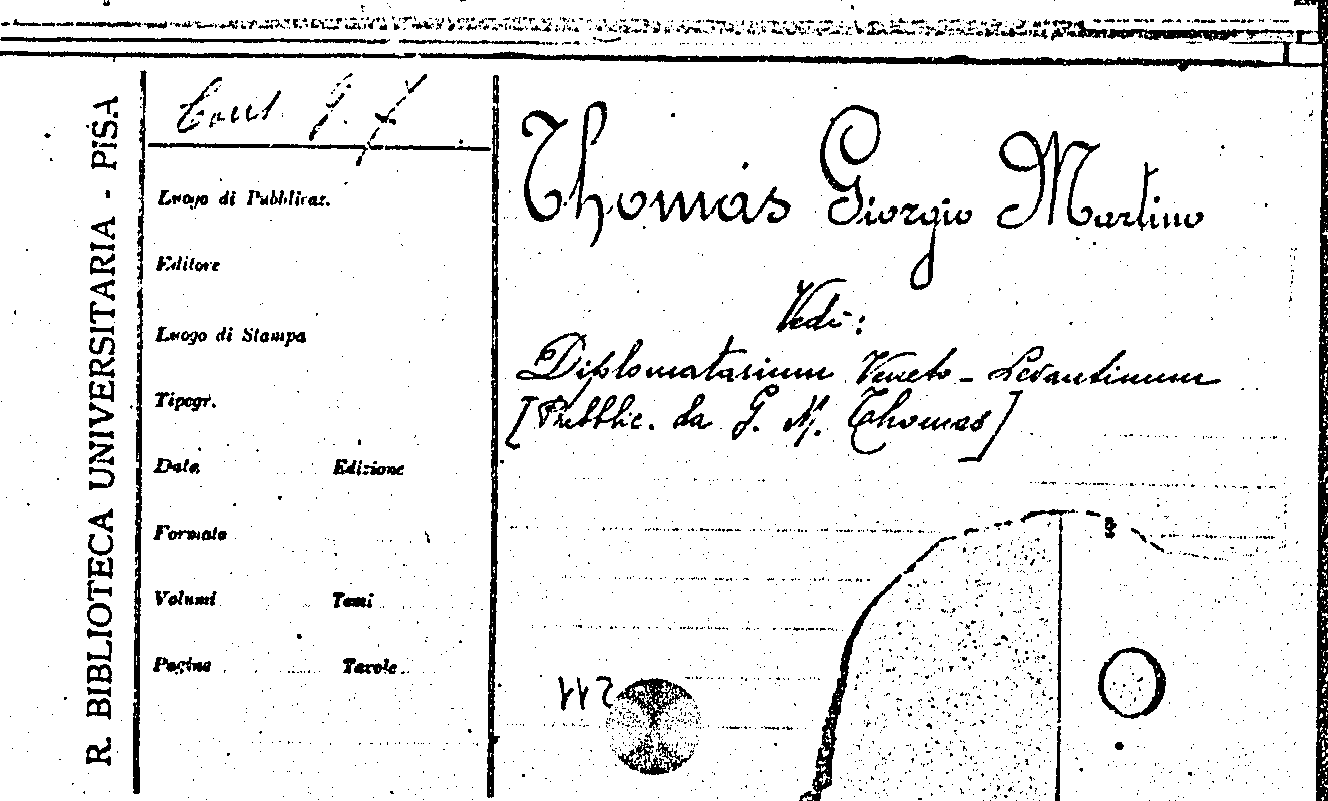 R. BIBLIOTECA UNIVERSITARIA - PISA
Cont. G. J
Luogo di Pubblicaz.
Editore
Luogo di Stampa
Tipogr.
Data Edizione
Formato
Volumi Tomi
Pagine Tavole
Thomas Giorgio Martino
Vedi:
Diplomatarium Veneto - Levantinum
[Pubblic. da G. M. Thomas]